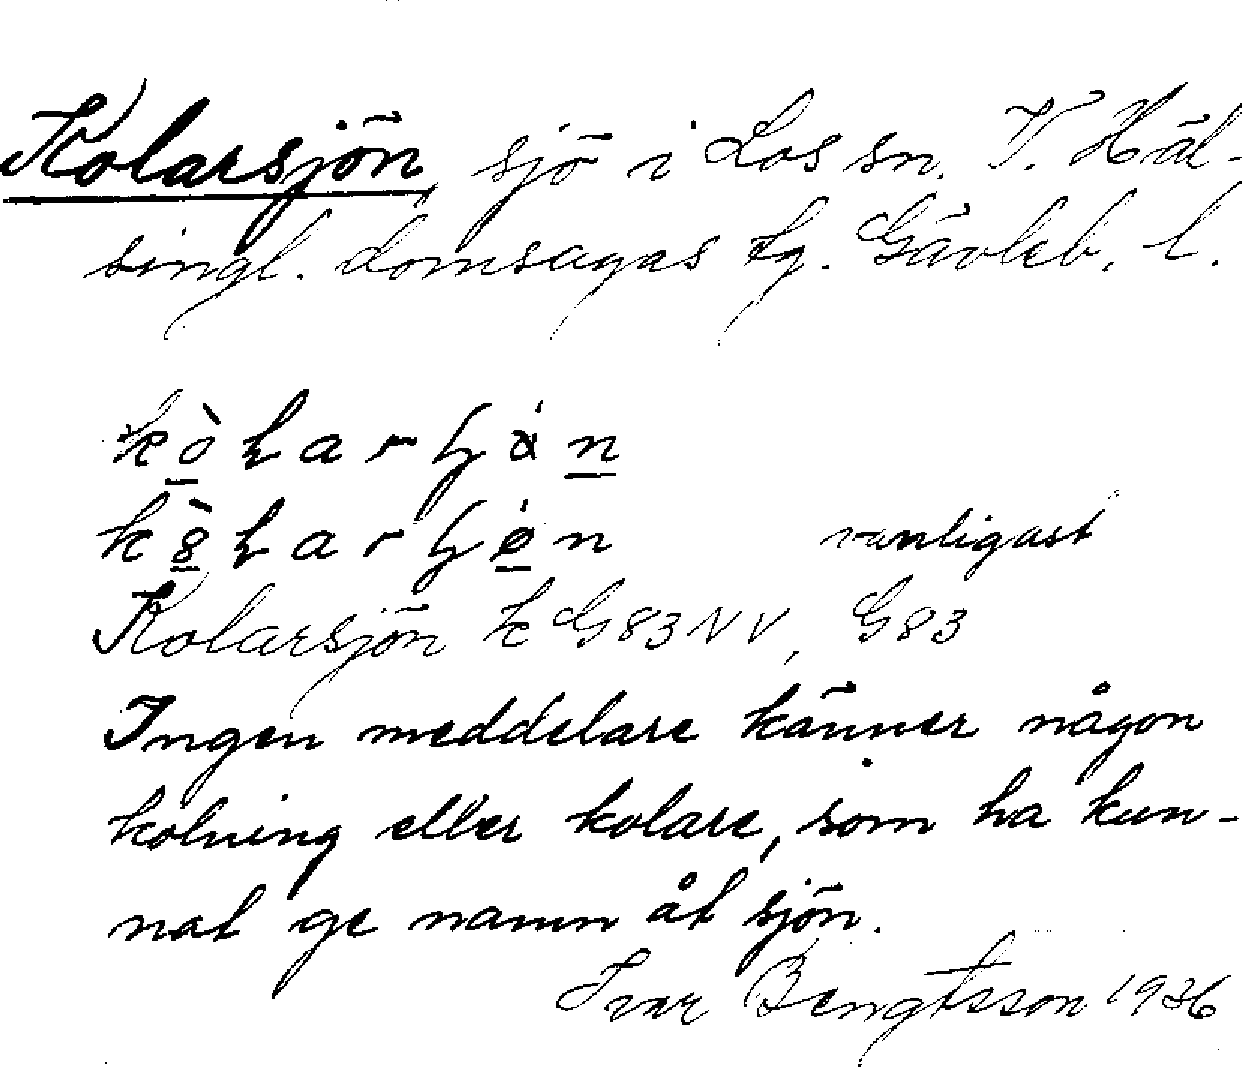 Kolarsjön, sjö i Los sn. V. Häl-
singl. domsagas tg. Gävleb. l.
vanligast
Kolarsjön k G83NV, G83
Ingen meddelare känner någon
kolning eller kolare, som ha kun-
nat ge namn åt sjön.
Ivar Bengtsson 1936